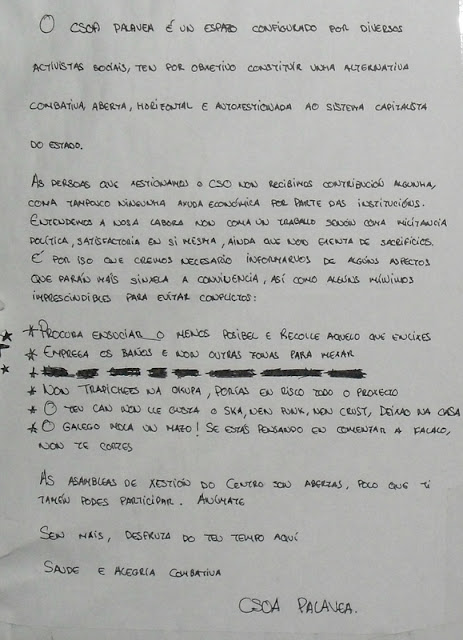 O CSOA PALAVEA É UN ESPAZO CONFIGURADO POR DIVERSOS
ACTIVISTAS SOCIAIS, TEN POR OBXETIVO CONSTITUÍR UNHA ALTERNATIVA
COMBATIVA, ABERTA, HORIZONTAL E AUTOXESTIONADA AO SISTEMA CAPITALISTA
DO ESTADO.
AS PERSOAS QUE XESTIONAMOS O CSO NON RECIBIMOS CONTRIBUCIÓN ALGUNHA,
COMA TAMPOUCO NINGUNHA AYUDA ECONÓMICA POR PARTE DAS INSTITUCIÓNS.
ENTENDEMOS A NOSA LABORA NON COMA UN TRABALLO SENÓN COMA MILITANCIA
POLÍTICA, SATISFACTORIA EN SI MESMA, AINDA QUE NON EXENTA DE SACRIFICIOS.
É POR ISO QUE CREMOS NECESARIO INFORMARVOS DE ALGÚNS ASPECTOS
QUE FARÁN MÁIS SINXELA A CONVIVENCIA, ASÍ COMO ALGÚNS MÍNIMOS
IMPRESCINDIBLES PARA EVITAR CONFLICTOS:
* PROCURA ENSUCIAR O MENOS POSIBEL E RECOLLE AQUELO QUE ENLIXES
* EMPREGA OS BAÑOS E NON OUTRAS ZONAS PARA MEXAR
*
* NON TRAPICHEES NA OKUPA, PORÍAS EN RISCO TODO O PROXECTO
* O TEU CAN NON LLE GUSTA O SKA, NEN PUNK, NEN CRUST, DÉIXAO NA CASA
* O GALEGO MOLA UN MAZO! SE ESTÁS PENSANDO EN COMENZAR A FALALO,
NON TE CORTES
AS ASAMBLEAS DE XESTIÓN DO CENTRO SON ABERTAS, POLO QUE TI
TAMÉN PODES PARTICIPAR. ANÍMATE
SEN MAIS, DESFRUTA DO TEU TEMPO AQUÍ
SAUDE E ALEGRIA COMBATIVA
CSOA PALAVEA.